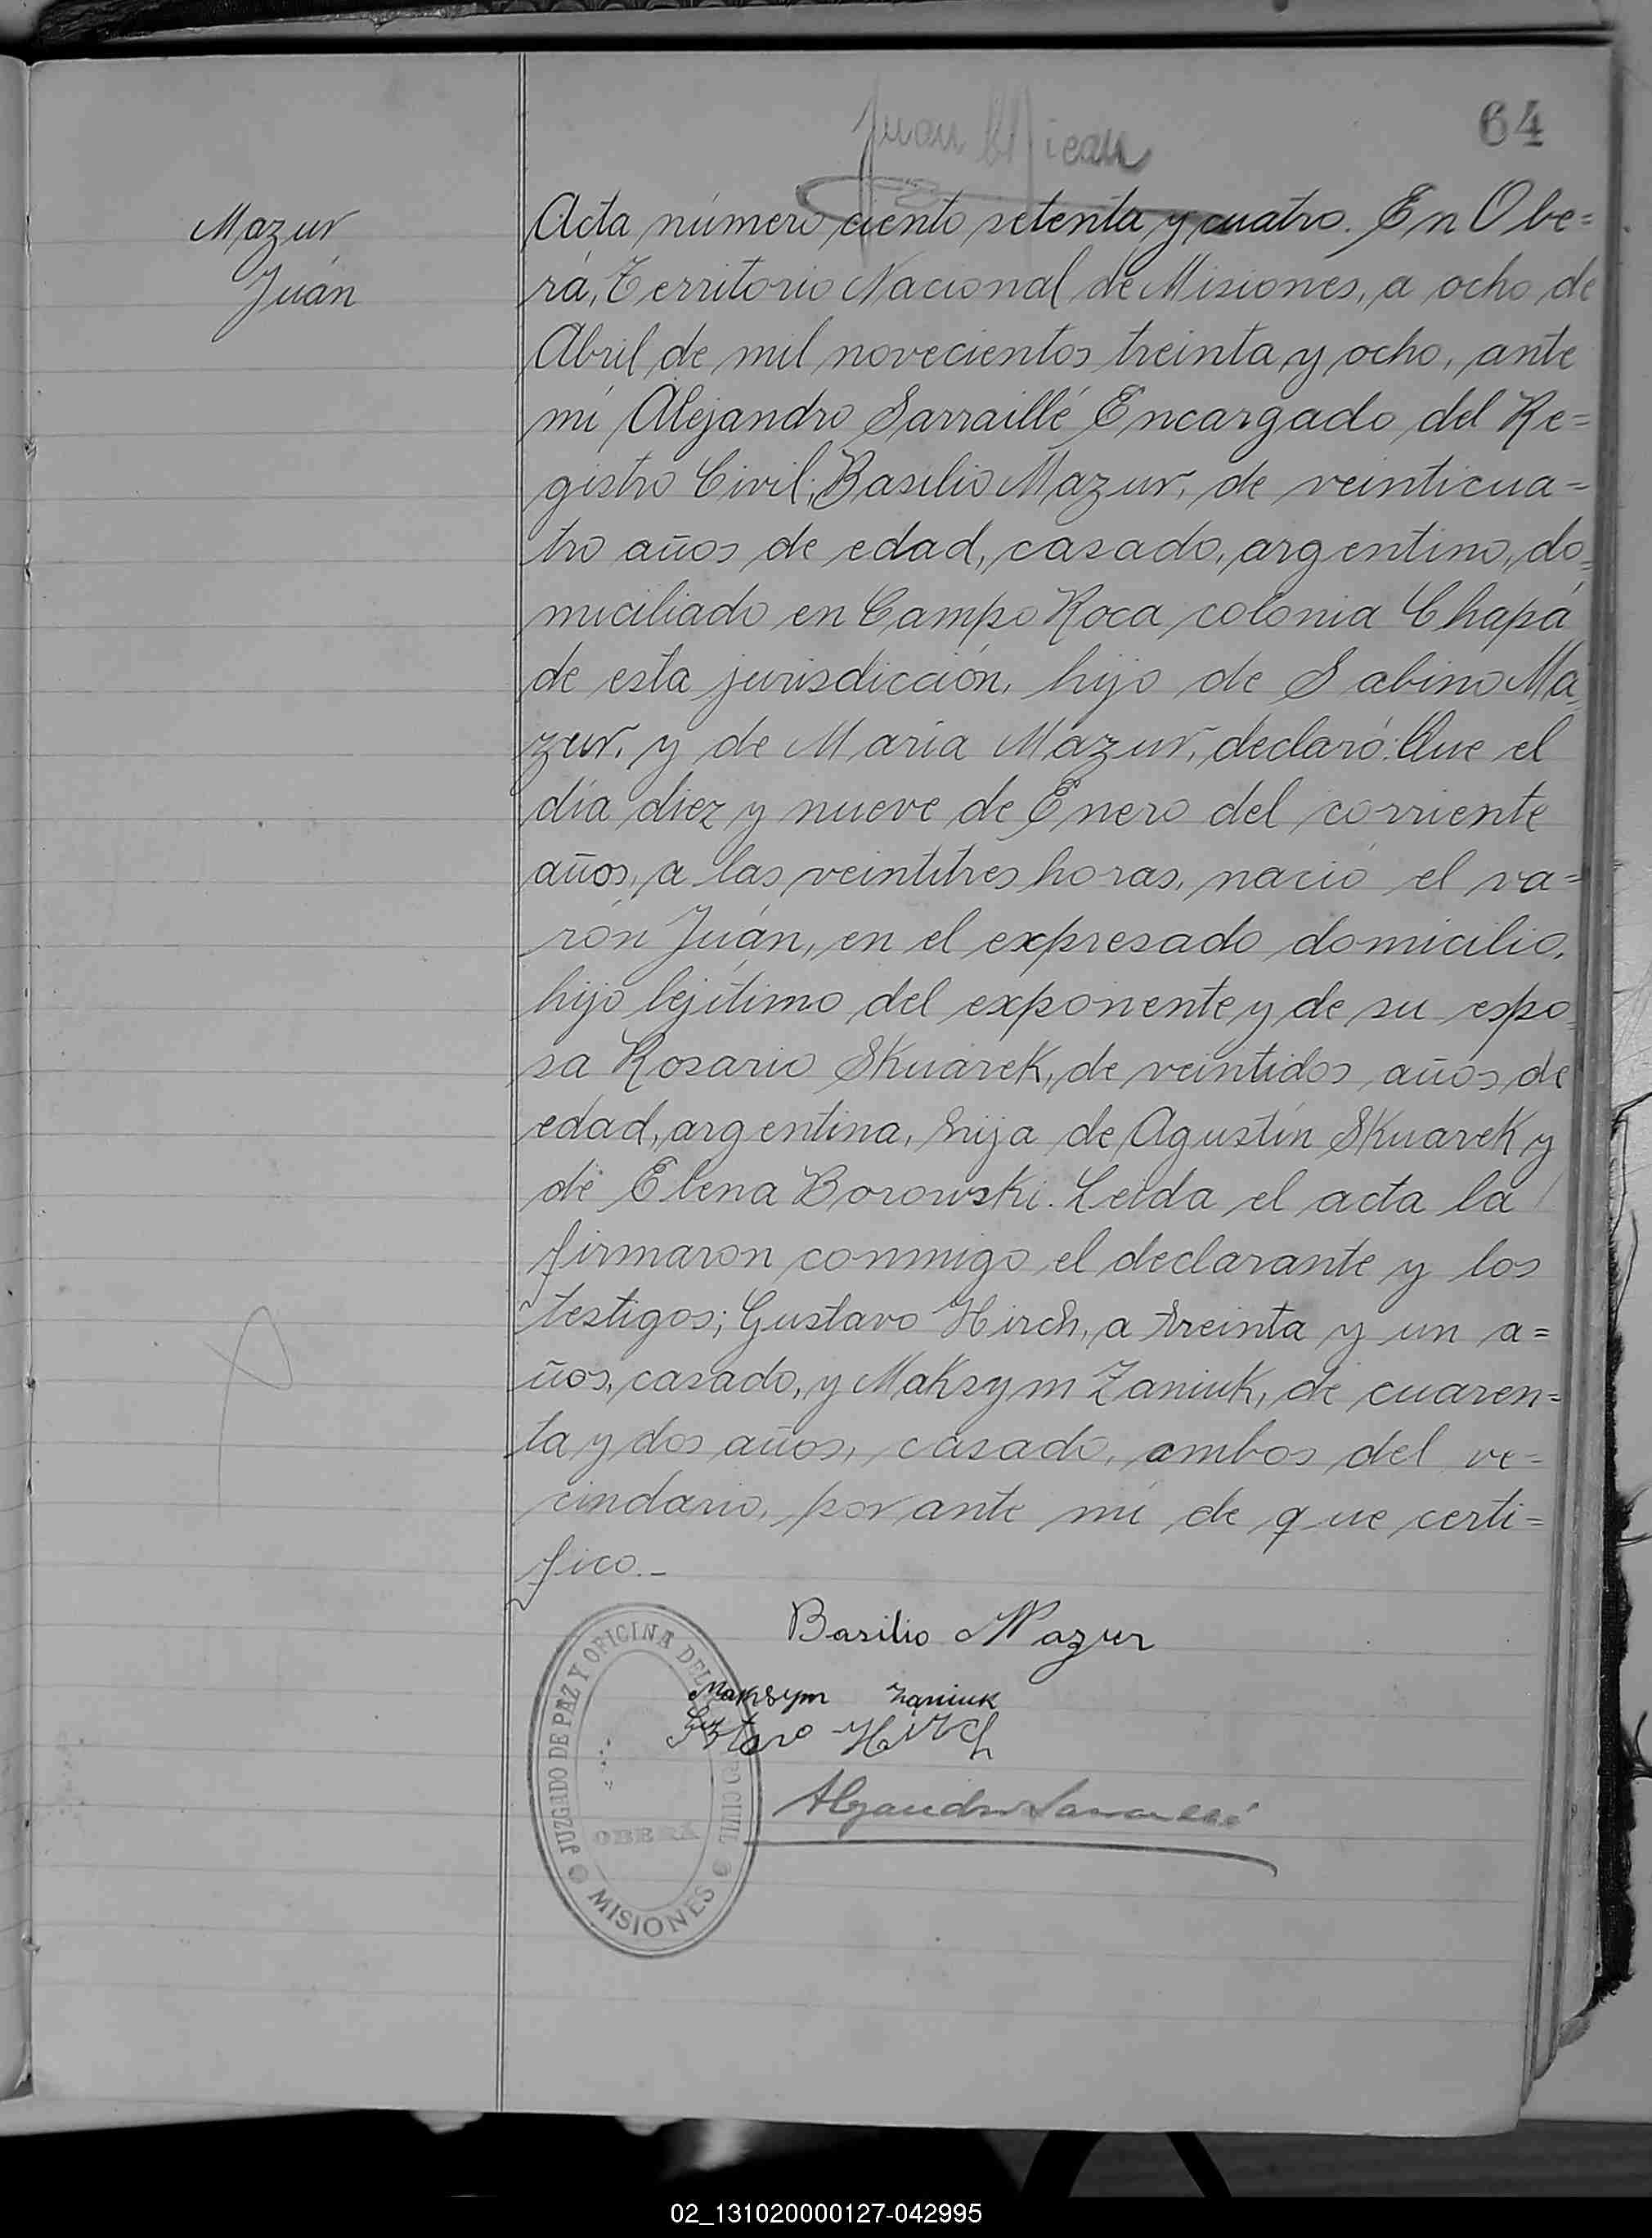 64
Juan
Mazur
Juán
Acta número ciento setenta y cuatro. En Obe=
rá, Territorio Nacional de Misiones, a ocho de
Abril de mil novecientos treinta y ocho, ante
mi Alejandro Sarraillé Encargado del Re=
gistro Civil; Basilio Mazur, de veinticua=
tro años de edad, casado, argentino, do=
miciliado en Campo Roca colonia Chapá
de esta jurisdicción, hijo de Sabino Ma=
zur, y de Maria Mazur, declaró: Que el
día diez y nueve de Enero del corriente
años, a las veintitres horas, nació el va=
rón Juán, en el expresado domicilio,
hijo lejítimo del exponente y de su espo=
sa Rosario Skuarek, de veintidos años de
edad, argentina, hija de Agustín Skuarek y
de Elena Borowski. Leida el acta la
firmaron conmigo el declarante y los
testigos; Gustavo Hirch, a treinta y un a=
ños, casado, y Maksym Zaniuk, de cuaren=
ta y dos años, casado, ambos del ve=
cindario, por ante mi de que certi=
fico.-
Basilio Mazur
Maksym Zaniuk
Gustavo Hirch
Alejandro Sarraillé
JUZGADO DE PAZ Y OFICINA DEL REGISTRO CIVIL
OBERÁ
MISIONES
02_131020000127-042995